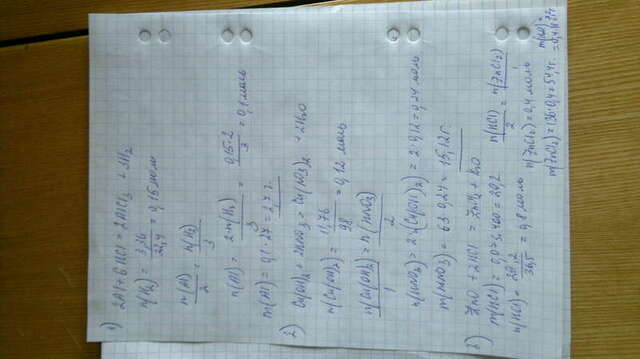 1) 2Al + 6HCl = 2AlCl3 + 3H2
n(H2) = 3,36 / 22,4 = 0,15 моль
n(Al) / 2 = n(H2) / 3
n(Al) = 2·n(H2) / 3 = 0,15·2 / 3 = 0,1 моль
m(Al) = 0,1·27 = 2,7 г.
2) Cu(OH)2 + 2HNO3 = Cu(NO3)2 + 2H2O
n(Cu(OH)2) = 11,76 / 98 = 0,12 моль
n(Cu(OH)2) / 1 = n(HNO3) / 2
n(HNO3) = 2·n(Cu(OH)2) = 2·0,12 = 0,24 моль
m(HNO3) = 63·0,24 = 15,12 г.
3) ZnO + 2HCl = ZnCl2 + H2O
m(HCl) = 0,073·400 = 29,2
n(HCl) = 29,2 / 36,5 = 0,8 моль
n(HCl) / 2 = n(ZnCl2) / 1
n(ZnCl2) = 0,4 моль
m(ZnCl2) = 136·0,4 = 54,4 г.